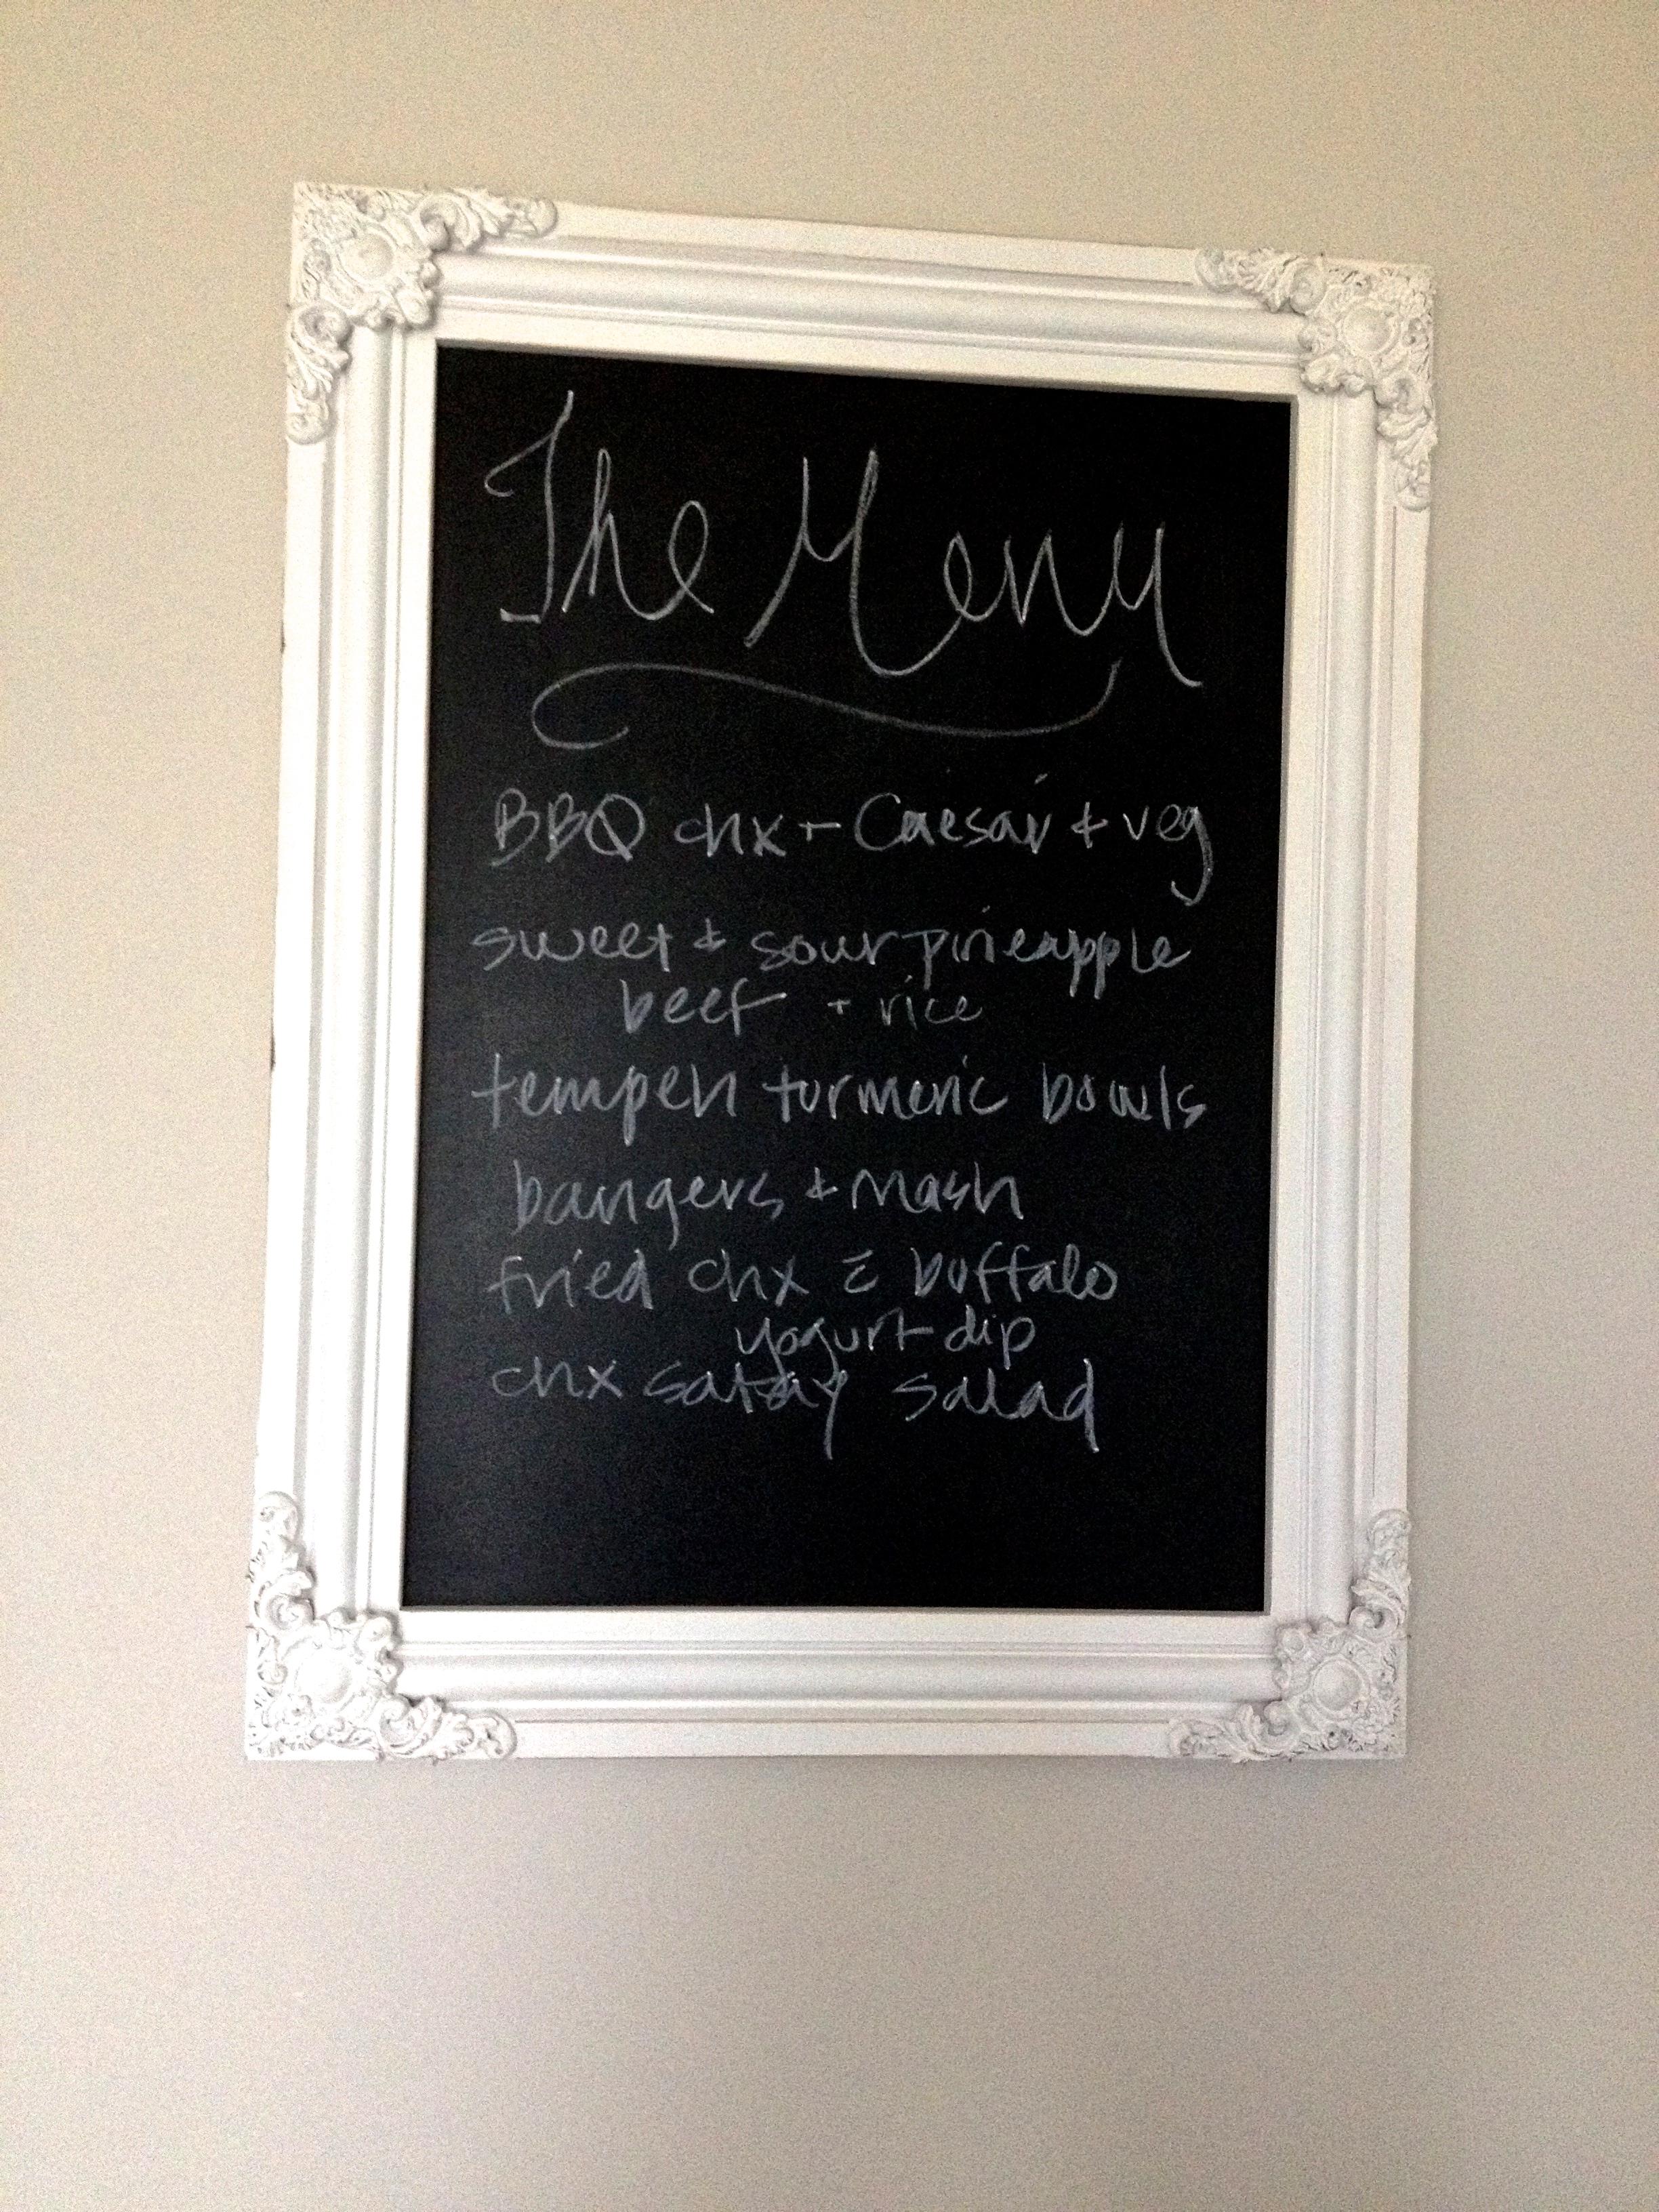 The Menu
BBQ chx + Caesar + veg
sweet + sour pineapple
beef + rice
tempeh turmeric bowls
bangers + mash
fried chx c̄ buffalo
yogurt dip
chx satay salad